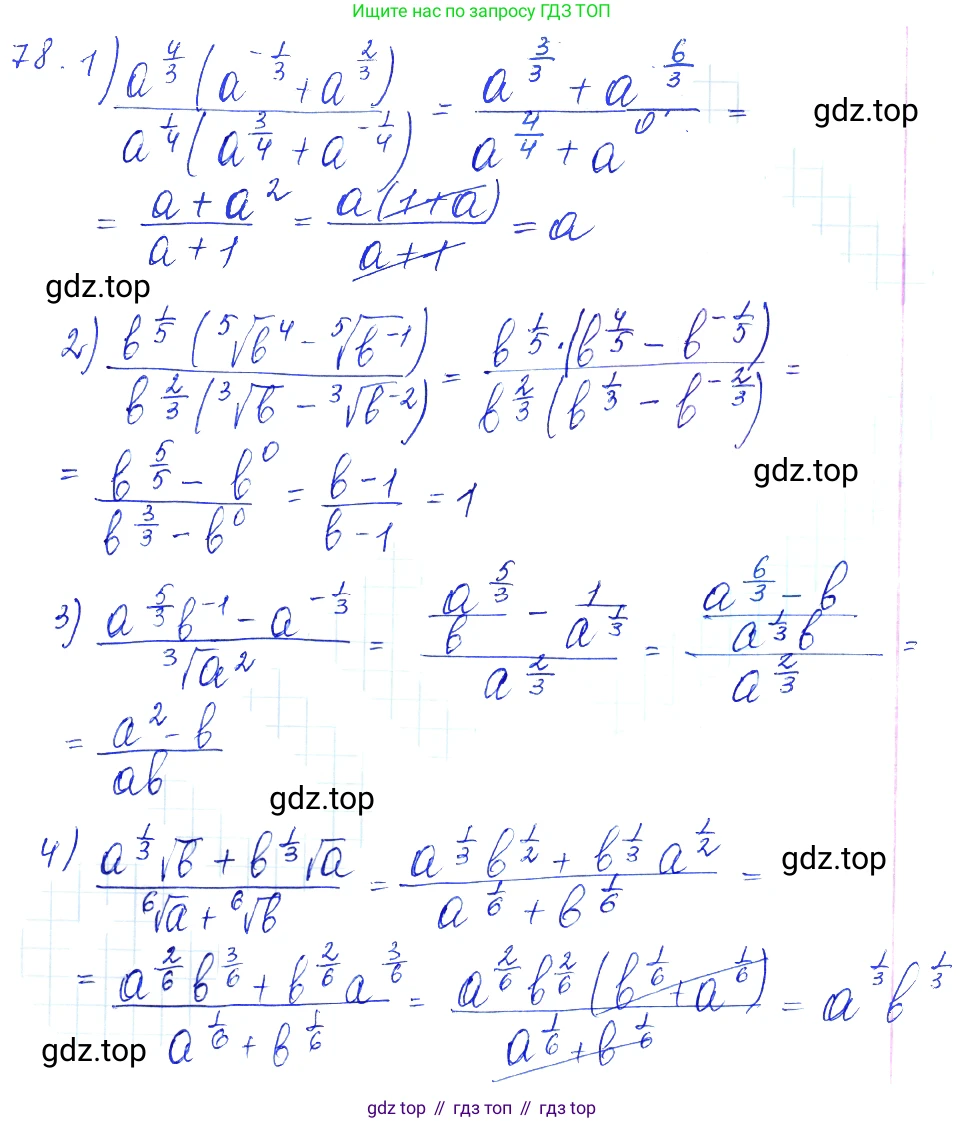 Ищите нас по запросу ГДЗ ТОП
78. 1) (a^(4/3) (a^(-1/3) + a^(2/3))) / (a^(1/4) (a^(3/4) + a^(-1/4))) = (a^(3/3) + a^(6/3)) / (a^(4/4) + a^0) =
gdz.top
= (a + a^2) / (a + 1) = (a(1+a)) / (a+1) = a
gdz.top
2) (в^(1/5) (⁵√в^4 - ⁵√в^(-1))) / (в^(2/3) (³√в - ³√в^(-2))) = (в^(1/5) · (в^(4/5) - в^(-1/5))) / (в^(2/3) (в^(1/3) - в^(-2/3))) =
= (в^(5/5) - в^0) / (в^(3/3) - в^0) = (в-1) / (в-1) = 1
gdz.top
3) (a^(5/3) в^(-1) - a^(-1/3)) / ³√a^2 = (a^(5/3)/в - 1/a^(1/3)) / a^(2/3) = ((a^(6/3) - в) / (a^(1/3) в)) / a^(2/3) =
= (a^2 - в) / (aв)
gdz.top
4) (a^(1/3) √в + в^(1/3) √a) / (⁶√a + ⁶√в) = (a^(1/3) в^(1/2) + в^(1/3) a^(1/2)) / (a^(1/6) + в^(1/6)) =
gdz.top
= (a^(2/6) в^(3/6) + в^(2/6) a^(3/6)) / (a^(1/6) + в^(1/6)) = (a^(2/6) в^(2/6) (в^(1/6) + a^(1/6))) / (a^(1/6) + в^(1/6)) = a^(1/3) в^(1/3)
gdz.top
gdz top // гдз топ // gdz top